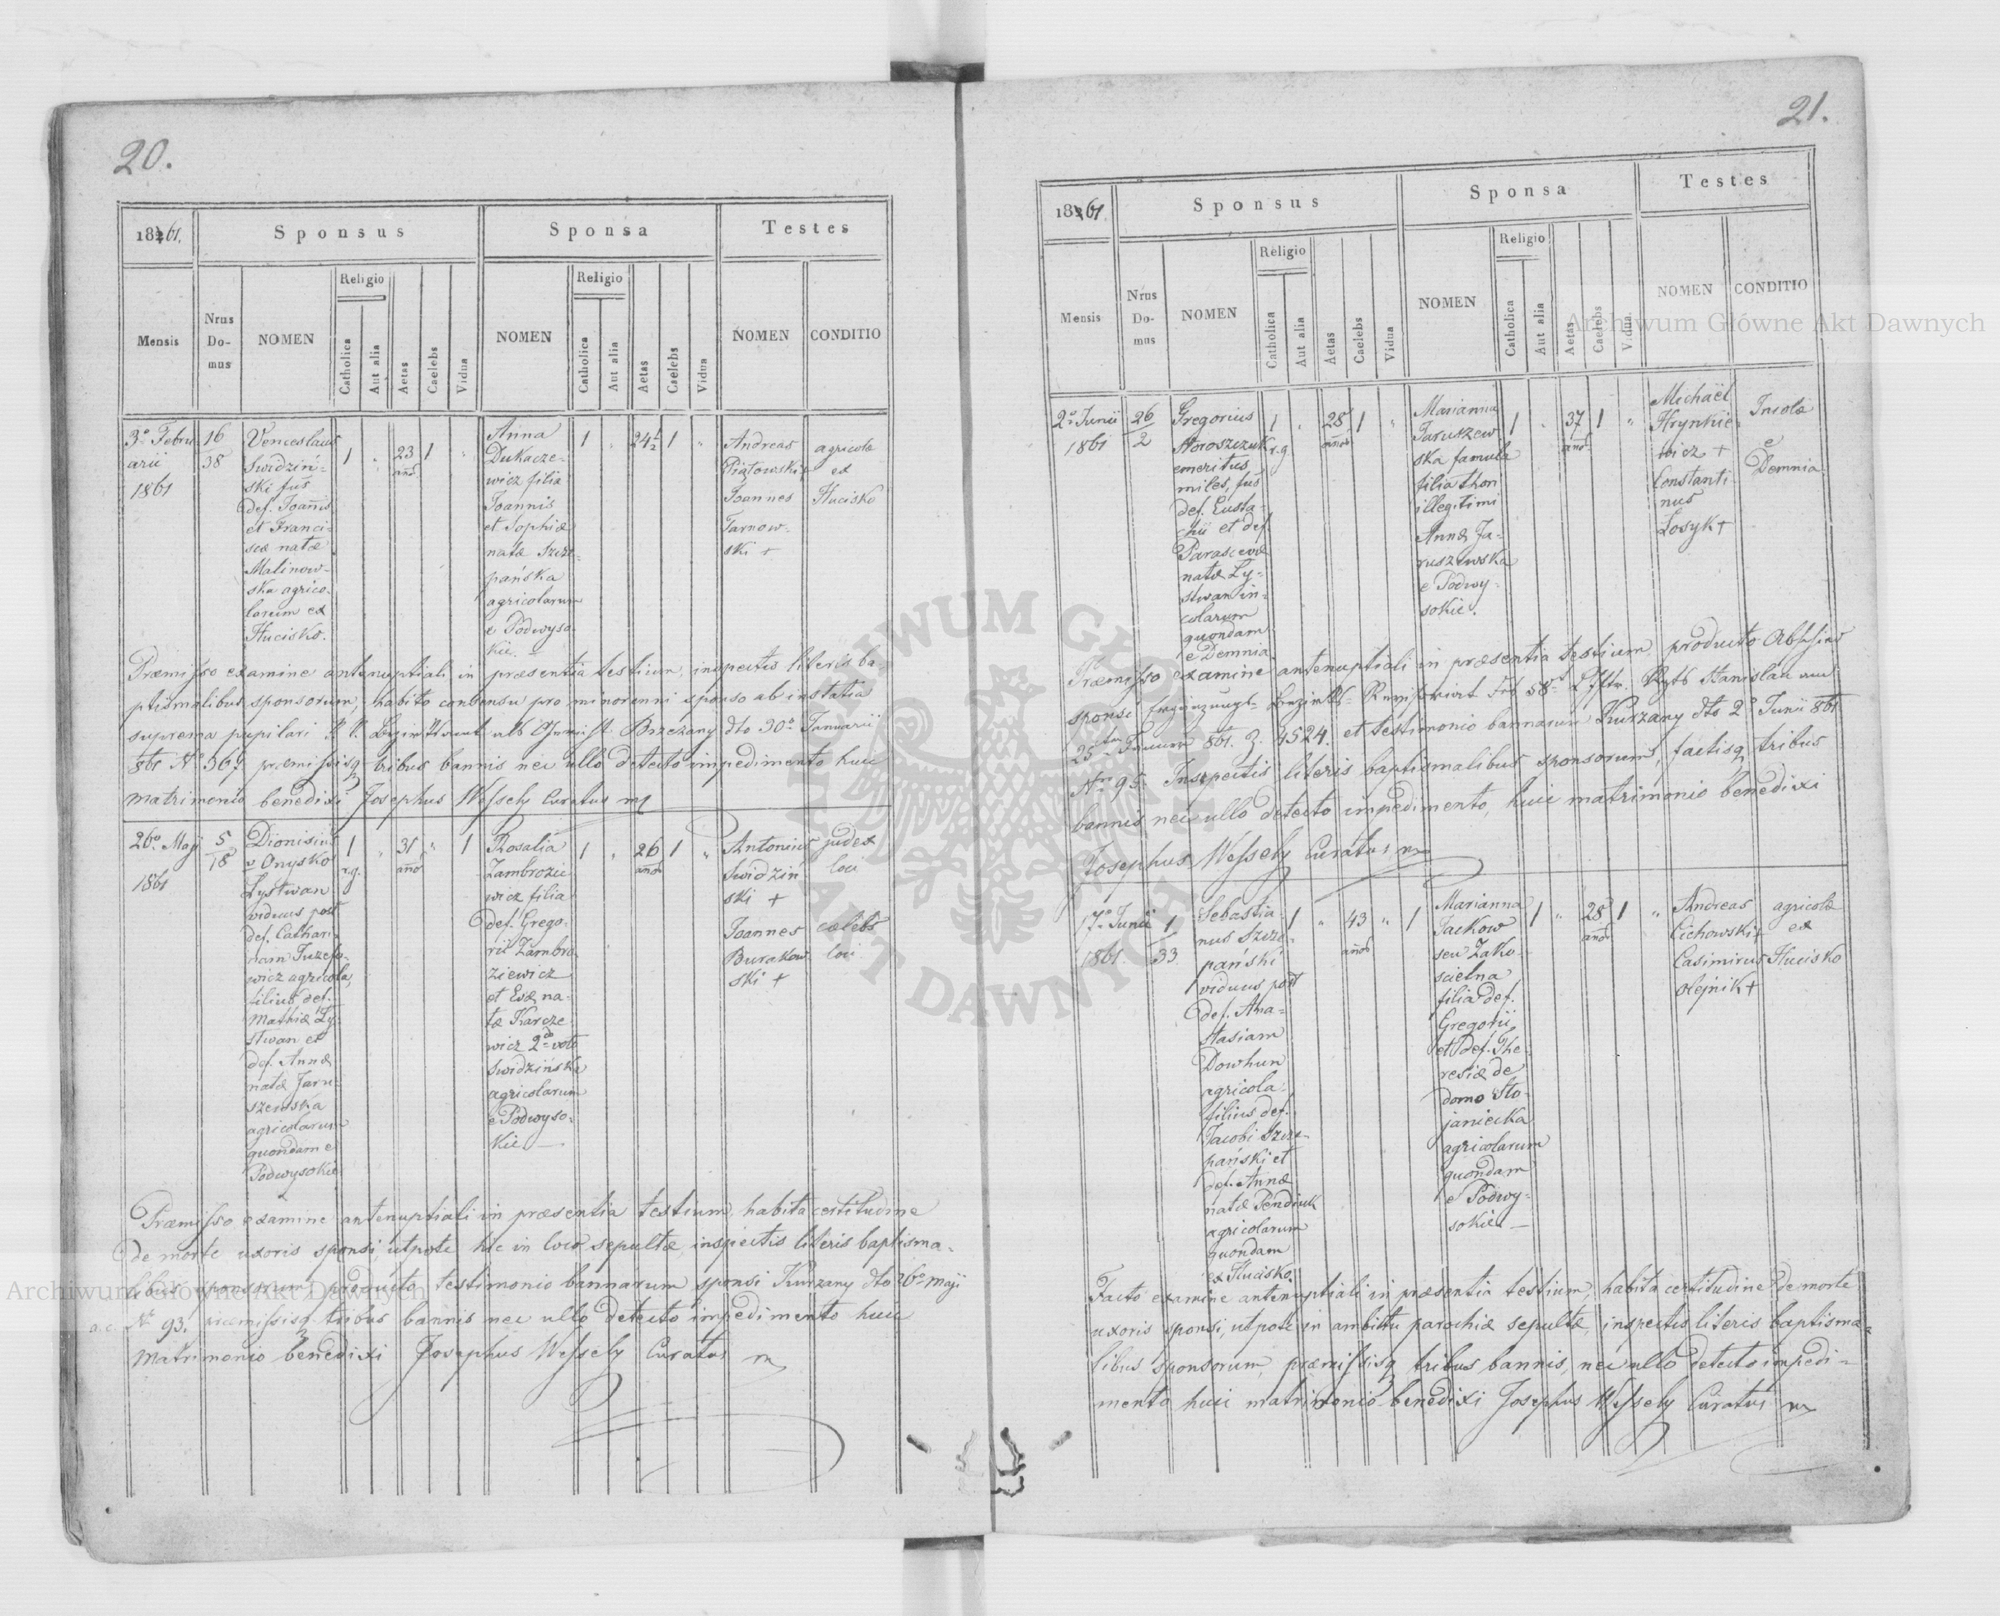 20.
1861.
Sponsus
Sponsa
Testes
Mensis
Nrus Do- mus
NOMEN
Religio
Catholica
Aut alia
Aetas
Caelebs
Vidua
NOMEN
Religio
Catholica
Aut alia
Aetas
Caelebs
Vidua
NOMEN
CONDITIO
3° Febru
arii
1861
16
38
Venceslaus
Swidziń-
ski fus
def. Joannis
et Franci-
scæ natæ
Malinow-
ska agrico
larum ex
Hucisko.
1
23
1
Anna
Dukacze-
wicz filia
Joannis
et Sophiæ
natæ Szcze-
pańska
agricolarum
e Podwyso-
kie.
1
24½
1
Andreas
Piątowski+
Joannes
Tarnow-
ski +
agricolæ
ex
Hucisko
Præmisso examine antenuptiali in præsentia testium, inspectis literis ba-
ptismalibus sponsorum, habito consensu pro minorenni sponso ab instatia
suprema pupilari Brzezany dto 30° Januarii
861 N° 367 præmissisq tribus bannis nec ullo detecto impedimento huic
matrimonio benedixi Josephus Wessely Curatus
26° Maji
1861
5
18
Dionisius
v Onysko
Lystwan
viduus post
def. Cathari-
nam Juzefo-
wicz agricola,
filius def.
Mathiæ Ly-
stwan et
def. Annæ
natæ Jaru-
szewska
agricolarum
quondam e
Podwysokie
1
r.g.
31
1
Rosalia
Zambrozie
wicz filia
def. Grego-
rii Zambro
ziewicz
et Evæ na-
tæ Karcze
wicz 2do voto
Swidzińska
agricolarum
e Podwyso-
kie —
1
26
1
Antonius
Swidziń
ski +
Joannes
Burakow
ski +
judex
loci
cælebs
loci
Præmisso examine antenuptiali in præsentia testium, habita certitudine
de morte uxoris sponsi, utpote hic in loco sepultæ, inspectis literis baptisma-
libus sponsorum producto testimonio bannarum sponsi Kurzany dto 26° Maji
a.c. N° 93. præmissisq tribus bannis nec ullo detecto impedimento huic
matrimonio benedixi Josephus Wessely Curatus
21.
1861
Sponsus
Sponsa
Testes
Mensis
Nrus Do- mus
NOMEN
Religio
Catholica
Aut alia
Aetas
Caelebs
Vidua
NOMEN
Religio
Catholica
Aut alia
Aetas
Caelebs
Vidua
NOMEN
CONDITIO
2° Junii
1861
26
2
Gregorius
Horoszczuk
emeritus
miles, fus
def. Eusta-
chii et def.
Parascevæ
natæ Ly-
stwan in-
colarum
quondam
e Demnia
1
r.g.
28
1
Marianna
Jaruszew
ska famula
filia thori
illegitimi
Annæ Ja-
ruszewska
e Podwy-
sokie.
1
37
1
Michaël
Hrynkie-
wicz +
Constanti
nus
Łosyk +
Incolæ
e
Demnia
Præmisso examine antenuptiali in præsentia testium, producto Abschied
sponsi Stanislau
861. Z. 4524. et testimonio bannarum Kurzany dto 2° Junii 861
Nr 95. Inspectis literis baptismalibus sponsorum, factisq tribus
bannis nec ullo detecto impedimento, huic matrimonio benedixi
Josephus Wessely Curatus
17° Junii
1861.
1
33
Sebastia-
nus Szcze-
pański
viduus post
def. Ana-
stasiam
Dowhun
agricola
filius def.
Jacobi Szcze-
pański et
def. Annæ
natæ Pendiuk
agricolarum
quondam
ex Hucisko.
1
43
1
Marianna
Jackow
seu Zako-
scielna
filia def.
Gregorii
et def. The-
resiæ de
domo Sto-
janiecka
agricolarum
quondam
e Podwy-
sokie. —
1
28
1
Andreas
Cichowski+
Casimirus
Olejnik+
agricolæ
ex
Hucisko
Facto examine antenuptiali in præsentia testium, habita certitudine de morte
uxoris sponsi, utpote in ambitu parochiæ sepultæ, inspectis literis baptisma-
libus sponsorum, præmissisq tribus bannis, nec ullo detecto impedi-
mento huic matrimonio benedixi Josephus Wessely Curatus
Archiwum Główne Akt Dawnych
Archiwum Główne Akt Dawnych
ARCHIWUM GŁÓWNE AKT DAWNYCH